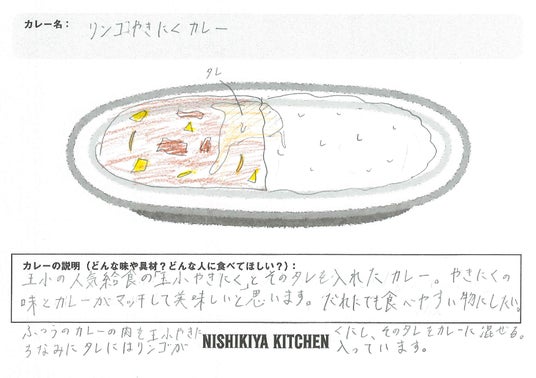 カレー名：
リンゴやきにくカレー
タレ
カレーの説明（どんな味や具材？どんな人に食べてほしい？）：
玉小の人気給食の「玉小やきにく」とそのタレも入れたカレー。やきにくの
味とカレーがマッチして美味しいと思います。だれにでも食べやすい物にしたい。
ふつうのカレーの肉を玉小やきにくにし、そのタレをカレーに混ぜる。
ちなみにタレにはリンゴが入っています。
NISHIKIYA KITCHEN